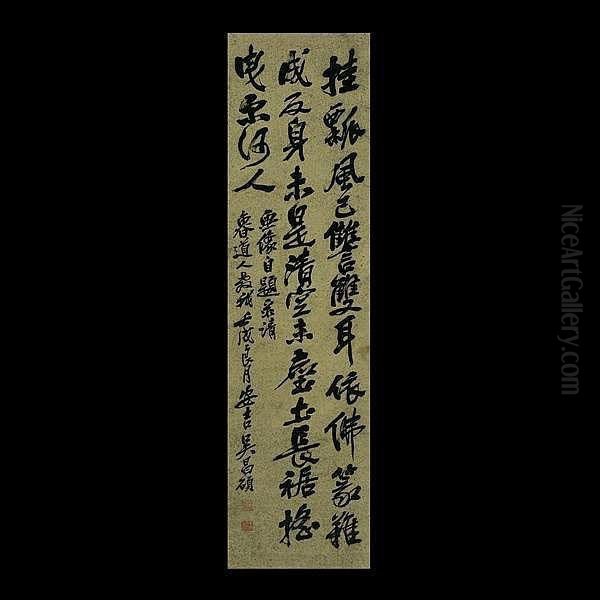 挂瓢風已讎雙耳依佛篆雖
成反身未是清空未塵土長裾搖
曳示何人
畫像自題示請
春道人教種壬戌良月安吉吴昌碩
NiceArtGallery.com